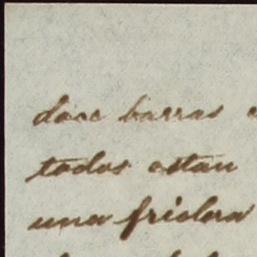 doce barras
todos estan
una friolera